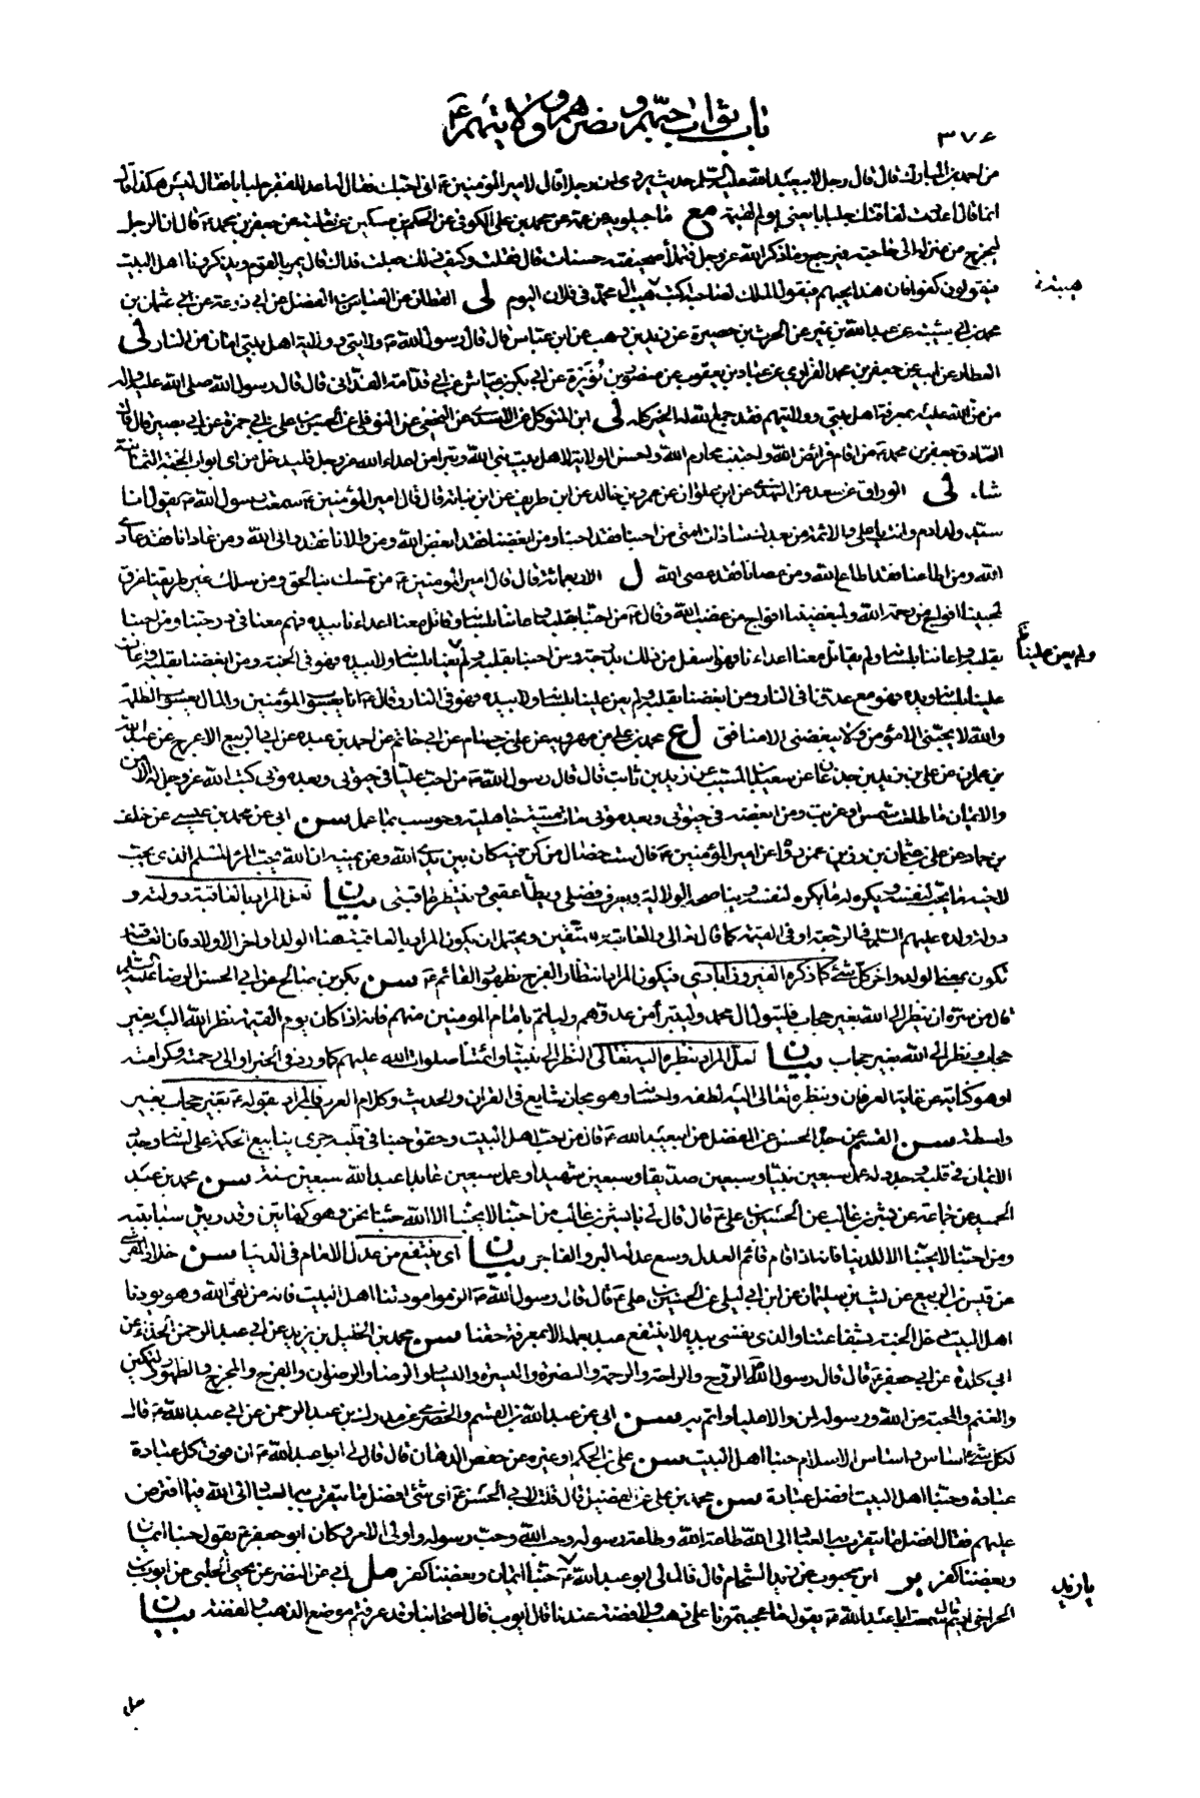 باب ثواب حبّهم ونصرهم وولايتهم ع
٣٧٤
من احمد بن المبارك قال قال رجل لابيعبد الله عليه السلم حديث يروى ان رجلا قال لامير المؤمنين ع انى احبك فقال له اعد للفقر جلبابا فقال ليس هكذا قال
انما قال اعددت لفاقتك جلبابا يعنى يوم القيمة مع ماجيلويه عن عمه عن محمد بن على الكوفى عن الحكم بن مسكين عن ثعلبة عن جعفر بن محمد ع قال ان الرجل
ليخرج من منزله الى حاجته فيرجع وما ذكر الله عز وجل فتملأ صحيفته حسنات قال فقلت وكيف ذلك جعلت فداك قال يمر بالقوم ويذكرونا اهل البيت
فيقولون كفوا فان هذا يحبهم فيقول الملك لصاحبه اكتب هيب آل محمد فى فلان اليوم لى القطان عن العباس بن الفضل عن ابى زرعة عن عثمان بن
محمد بن ابى شيبة عن عبد الله بن نمير عن الحرث بن حصيرة عن زيد بن وهب عن ابن عباس قال قال رسول الله ص ولايتى وولاية اهل بيتى امان من النار لى
العطار عن ابيه عن جعفر بن محمد الفزارى عن عباد بن يعقوب عن منصور بن نويرة عن ابى بكر بن عياش عن ابى قدامة الفدانى قال قال رسول الله صلى الله عليه واله
من من الله عليه بمعرفة اهل بيتى وولايتهم فقد جمع الله له الخير كله لى ابن المتوكل عن الاسدى عن النخعى عن النوفلى عن الحسن بن على بن ابى حمزة عن ابى بصير قال قال
الصادق جعفر بن محمد ع من اقام فرائض الله واجتنب محارم الله واحسن الولاية لاهل بيت نبى الله وتبرأ من اعداء الله عز وجل فليدخل من اى ابواب الجنة الثمانية
شاء لى الوراق عن سعد عن النهدى عن ابن علوان عن عمرو بن خالد عن ابن طريف عن ابن نباتة قال قال امير المؤمنين ع سمعت رسول الله ص يقول انا
سيد ولد ادم وانت يا على والائمة من بعدك سادات امتى من احبنا فقد احب الله ومن ابغضنا فقد ابغض الله ومن والانا فقد والى الله ومن عادانا فقد عادى
الله ومن اطاعنا فقد اطاع الله ومن عصانا فقد عصى الله ل الاربعمائة قال قال امير المؤمنين ع من تمسك بنا لحق ومن سلك غير طريقتنا غرق
لمحبينا افواج من رحمة الله ولمبغضينا افواج من غضب الله وقال ع من احبنا بقلبه واعاننا بلسانه وقاتل معنا اعداءنا بيده فهم معنا فى درجتنا ومن احبنا
بقلبه واعاننا بلسانه ولم يقاتل معنا اعداءنا فهو اسفل من ذلك بدرجة ومن احبنا بقلبه ولم يعنا بلسانه ولا بيده فهو فى الجنة ومن ابغضنا بقلبه واعان
علينا بلسانه ويده فهو مع عدونا فى النار ومن ابغضنا بقلبه ولم يعن علينا بلسانه ولا بيده فهو فى النار وقال ع انا يعسوب المؤمنين والمال يعسوب الظلمة
والله لا يحبنى الا مؤمن ولا يبغضنى الا منافق ل ع محمد بن على بن مهرويه عن على بن حسام عن ابى حاتم عن احمد بن عبده عن ابى الربيع الاعرج عن عبد الله
بن عمران عن على بن زيد بن جدعان عن سعيد بن المسيب عن زيد بن ثابت قال قال رسول الله ص من احب عليا فى حيوتى وبعد موتى كتب الله عز وجل له الامن
والايمان ما طلعت شمس او غربت ومن ابغضه فى حيوتى وبعد موتى مات ميتة جاهلية وحوسب بما عمل سن ابى عن محمد بن عيسى عن خلف
بن حماد عن على بن عثمان بن رزين عمن رواه عن امير المؤمنين ع قال ست خصال من كن فيه كان بين يدى الله وعن يمينه ان الله يحب المرء المسلم الذى يحب
لاخيه ما يحب لنفسه ويكره له ما يكره لنفسه ويناصحه الولاية ويعرف فضلى ويطأ عقبى وينتظر عاقبتى بيان لعل المراد بالعاقبة دولته و
دولة ولده عليهم السلم فى الرجعة او فى القيمة كما قال تعالى والعاقبة للمتقين ويحتمل ان يكون المراد بالعاقبة هنا الولد او اخر الاولاد فان العاقبة
تكون بمعنى الولد واخر كل شئ كما ذكره الفيروزآبادى فيكون المراد انتظار الفرج بظهور القائم ع سن بكر بن صالح عن ابى الحسن الرضا عليه السلم
قال من سره ان ينظر الى الله بغير حجاب فليتول آل محمد وليتبرأ من عدوهم وليأتم بامام المؤمنين منهم فانه اذا كان يوم القيمة نظر الله اليه بغير
حجاب ونظر الى الله بغير حجاب بيان لعل المراد بنظره اليه تعالى النظر الى نبينا وائمتنا صلوات الله عليهم كما ورد فى الخبر او الى رحمته وكرامته
او هو كناية عن غاية العرفان وبنظره تعالى اليه لطفه واحسانه وهو مجاز شايع فى القران والحديث وكلام العرب فالمراد بقوله ع بغير حجاب بغير
واسطة سن القسم عن جده الحسن عن المفضل عن ابيعبد الله ع قال من احب اهل البيت وحقق حبنا فى قلبه جرى ينابيع الحكمة على لسانه وجدد
الايمان فى قلبه وجدد له عمل سبعين نبيا وسبعين صديقا وسبعين شهيدا وعمل سبعين عابدا عبد الله سبعين سنة سن محمد بن عبد
الحميد عن جماعة عن بشر بن غالب عن الحسين بن على ع قال قال لى يا بشر بن غالب من احبنا لا يحبنا الا لله جئنا نحن وهو كهاتين وقدر بين سبابتيه
ومن احبنا لا يحبنا الا للدنيا فانه اذا قام قائم العدل وسع عدله البر والفاجر بيان اى ينتفع من عدل الامام فى الدنيا سن خلاد المقرى
عن قيس بن الربيع عن ليث بن سليمان عن ابن ابى ليلى عن الحسين بن على ع قال قال رسول الله ص الزموا مودتنا اهل البيت فانه من لقى الله وهو يودنا
اهل البيت دخل الجنة بشفاعتنا والذى نفسى بيده لا ينتفع عبد بعمله الا بمعرفة حقنا سن محمد بن الخليل بن يزيد عن ابى عبد الرحمن الحذاء عن
ابى كلدة عن ابى جعفر ع قال قال رسول الله ص الروح والراحة والرحمة والنصرة واليسر واليسار والرضا والرضوان والفرج والمخرج والظهور والتمكين
والغنم والمحبة من الله ورسوله لمن والى عليا واتم به سن ابى عن عبد الله بن القسم والحضرمى عن مدرك بن عبد الرحمن عن ابى عبد الله ع قال
لكل شئ اساس واساس الاسلام حبنا اهل البيت سن على بن الحكم او غيره عن حفص الدهان قال قال لى ابو عبد الله ع ان فوق كل عبادة
عبادة وحبنا اهل البيت افضل عبادة سن محمد بن على عن الفضيل قال قلت لابى الحسن ع اى شئ افضل ما يتقرب به العباد الى الله فيما افترض
عليهم فقال افضل ما يتقرب به العباد الى الله طاعة الله وطاعة رسوله وحب الله وحب رسوله واولى الامر وكان ابو جعفر ع يقول حبنا ايمان
وبغضنا كفر ير ابن محبوب عن زيد الشحام قال قال لى ابو عبد الله ع حبنا ايمان وبغضنا كفر مل ابى عن النضر عن يحيى الحلبى عن ايوب بن
الحر اخى اديم قال سمعت ابا عبد الله ع يقول ما احببتمونا على ذهب ولا فضة عندنا قال ايوب قال اصحابنا وقد عرفتم موضع الذهب والفضة بيان
ولم يعن علينا
يا زيد